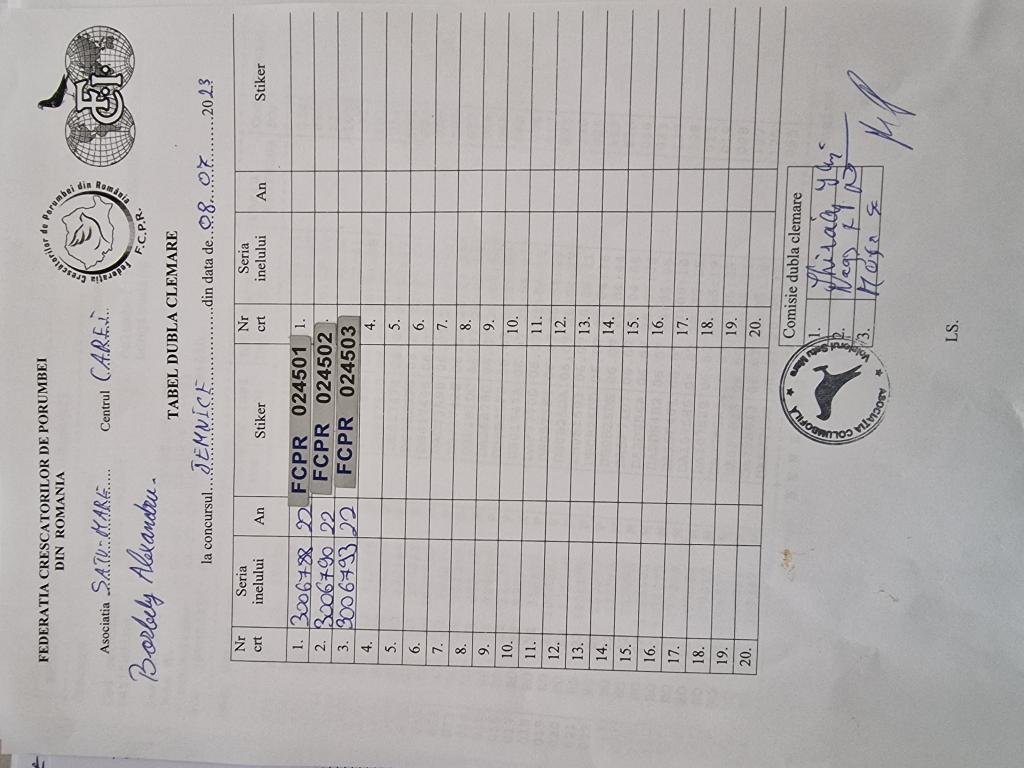 FEDERATIA CRESCATORILOR DE PORUMBEI
DIN ROMANIA
Federația Crescătorilor de Porumbei din România
F.C.P.R.
F.C.I.
Asociatia SATU-MARE Centrul CAREI
Borbely Alexandru.
TABEL DUBLA CLEMARE
la concursul JEMNICE din data de 08.07.2023
Nr crt Seria inelului An Stiker Nr crt Seria inelului An Stiker
1. 3006788 22 FCPR 024501 1.
2. 3006790 22 FCPR 024502
3. 3006793 22 FCPR 024503
4. 4.
5. 5.
6. 6.
7. 7.
8. 8.
9. 9.
10. 10.
11. 11.
12. 12.
13. 13.
14. 14.
15. 15.
16. 16.
17. 17.
18. 18.
19. 19.
20. 20.
Comisie dubla clemare
1.
2.
3.
ASOCIAȚIA COLUMBOFILA
Voiajorul Satu Mare
LS.